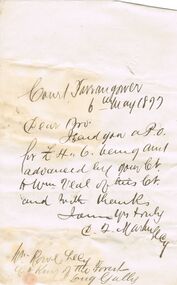 Court Tarrangower
6th May 1897
Dear Bro.
I send you a P.O.
for £ being amt
advanced by your Ct.
to Wm Neal of this Ct.
and with thanks
I am Yrs truly
Wm. Rowe Secy
Ct King of the Forest
Long Gully